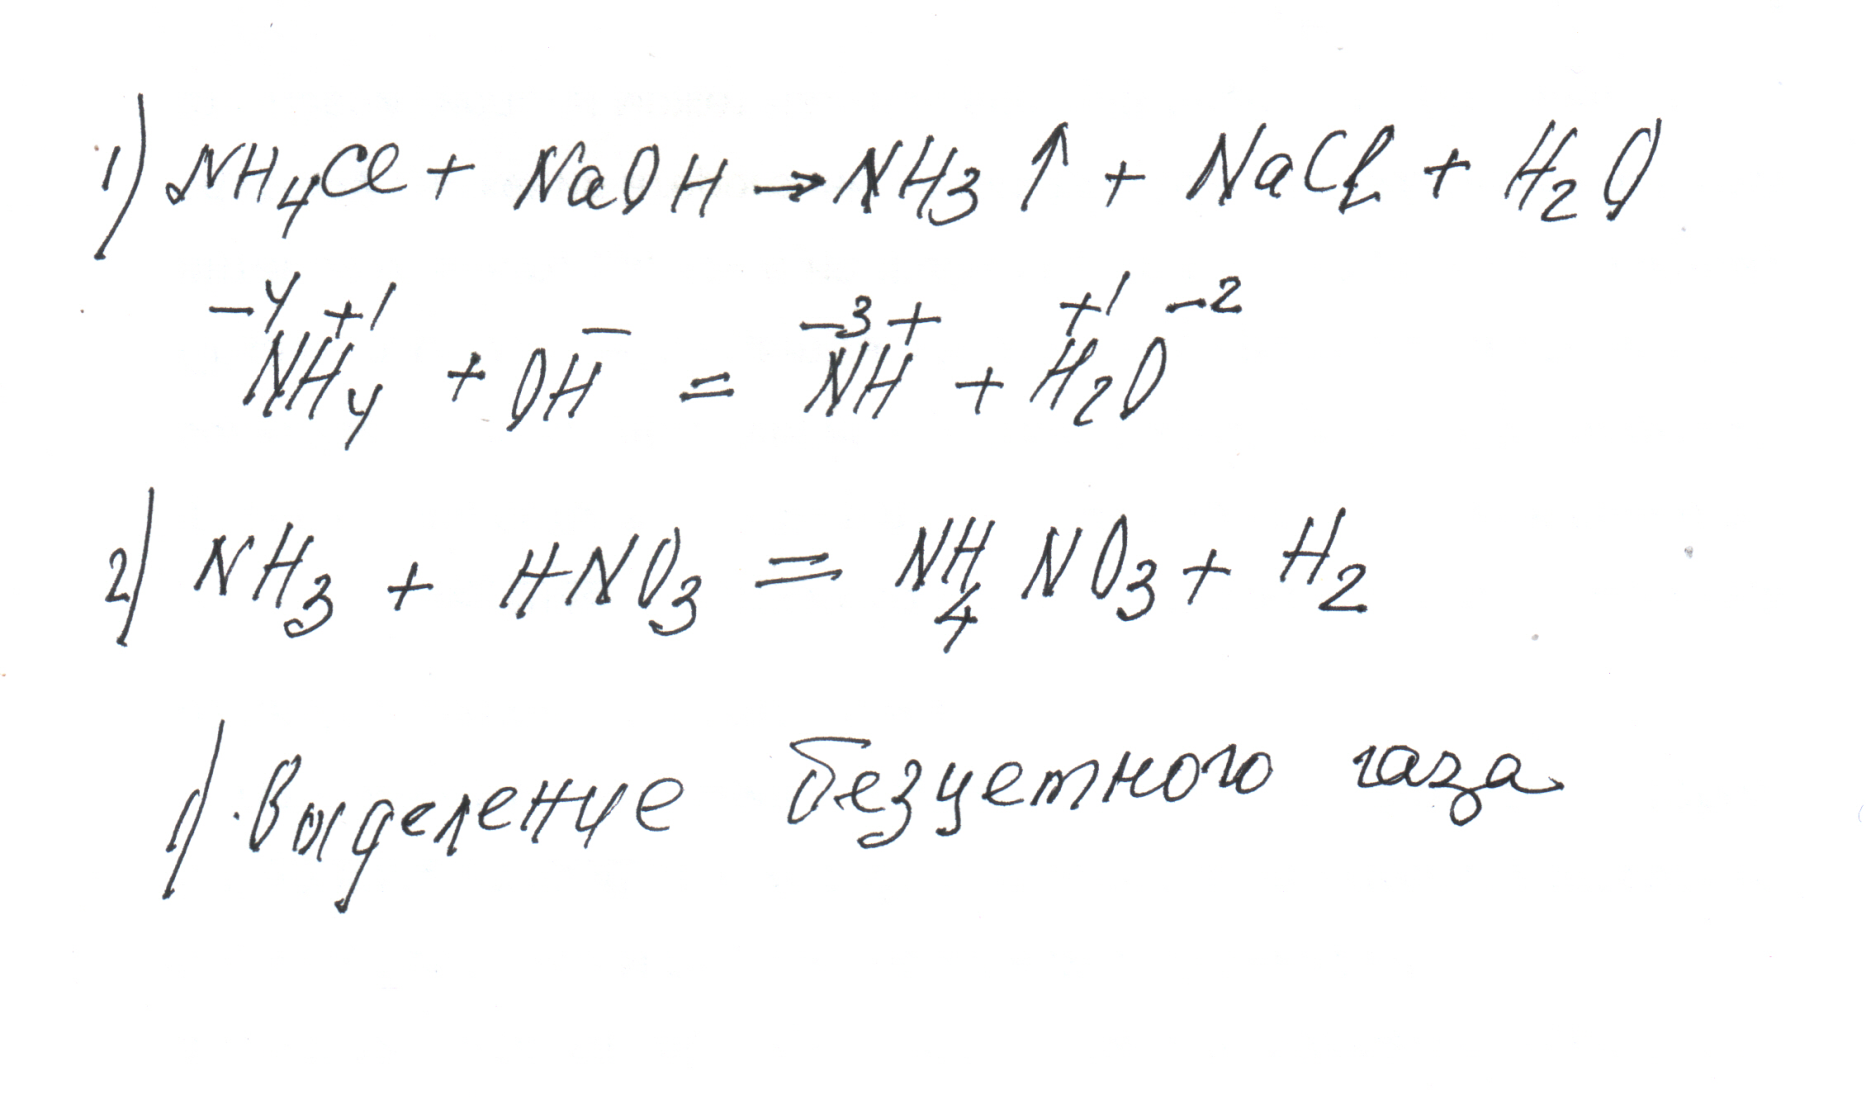 1) NH4Cl + NaOH → NH3 ↑ + NaCl + H2O
-4 +1 - -3 + +1 -2
NH4 + OH = NH + H2O
2) NH3 + HNO3 = NH4 NO3 + H2
1) Выделение безцетного газа